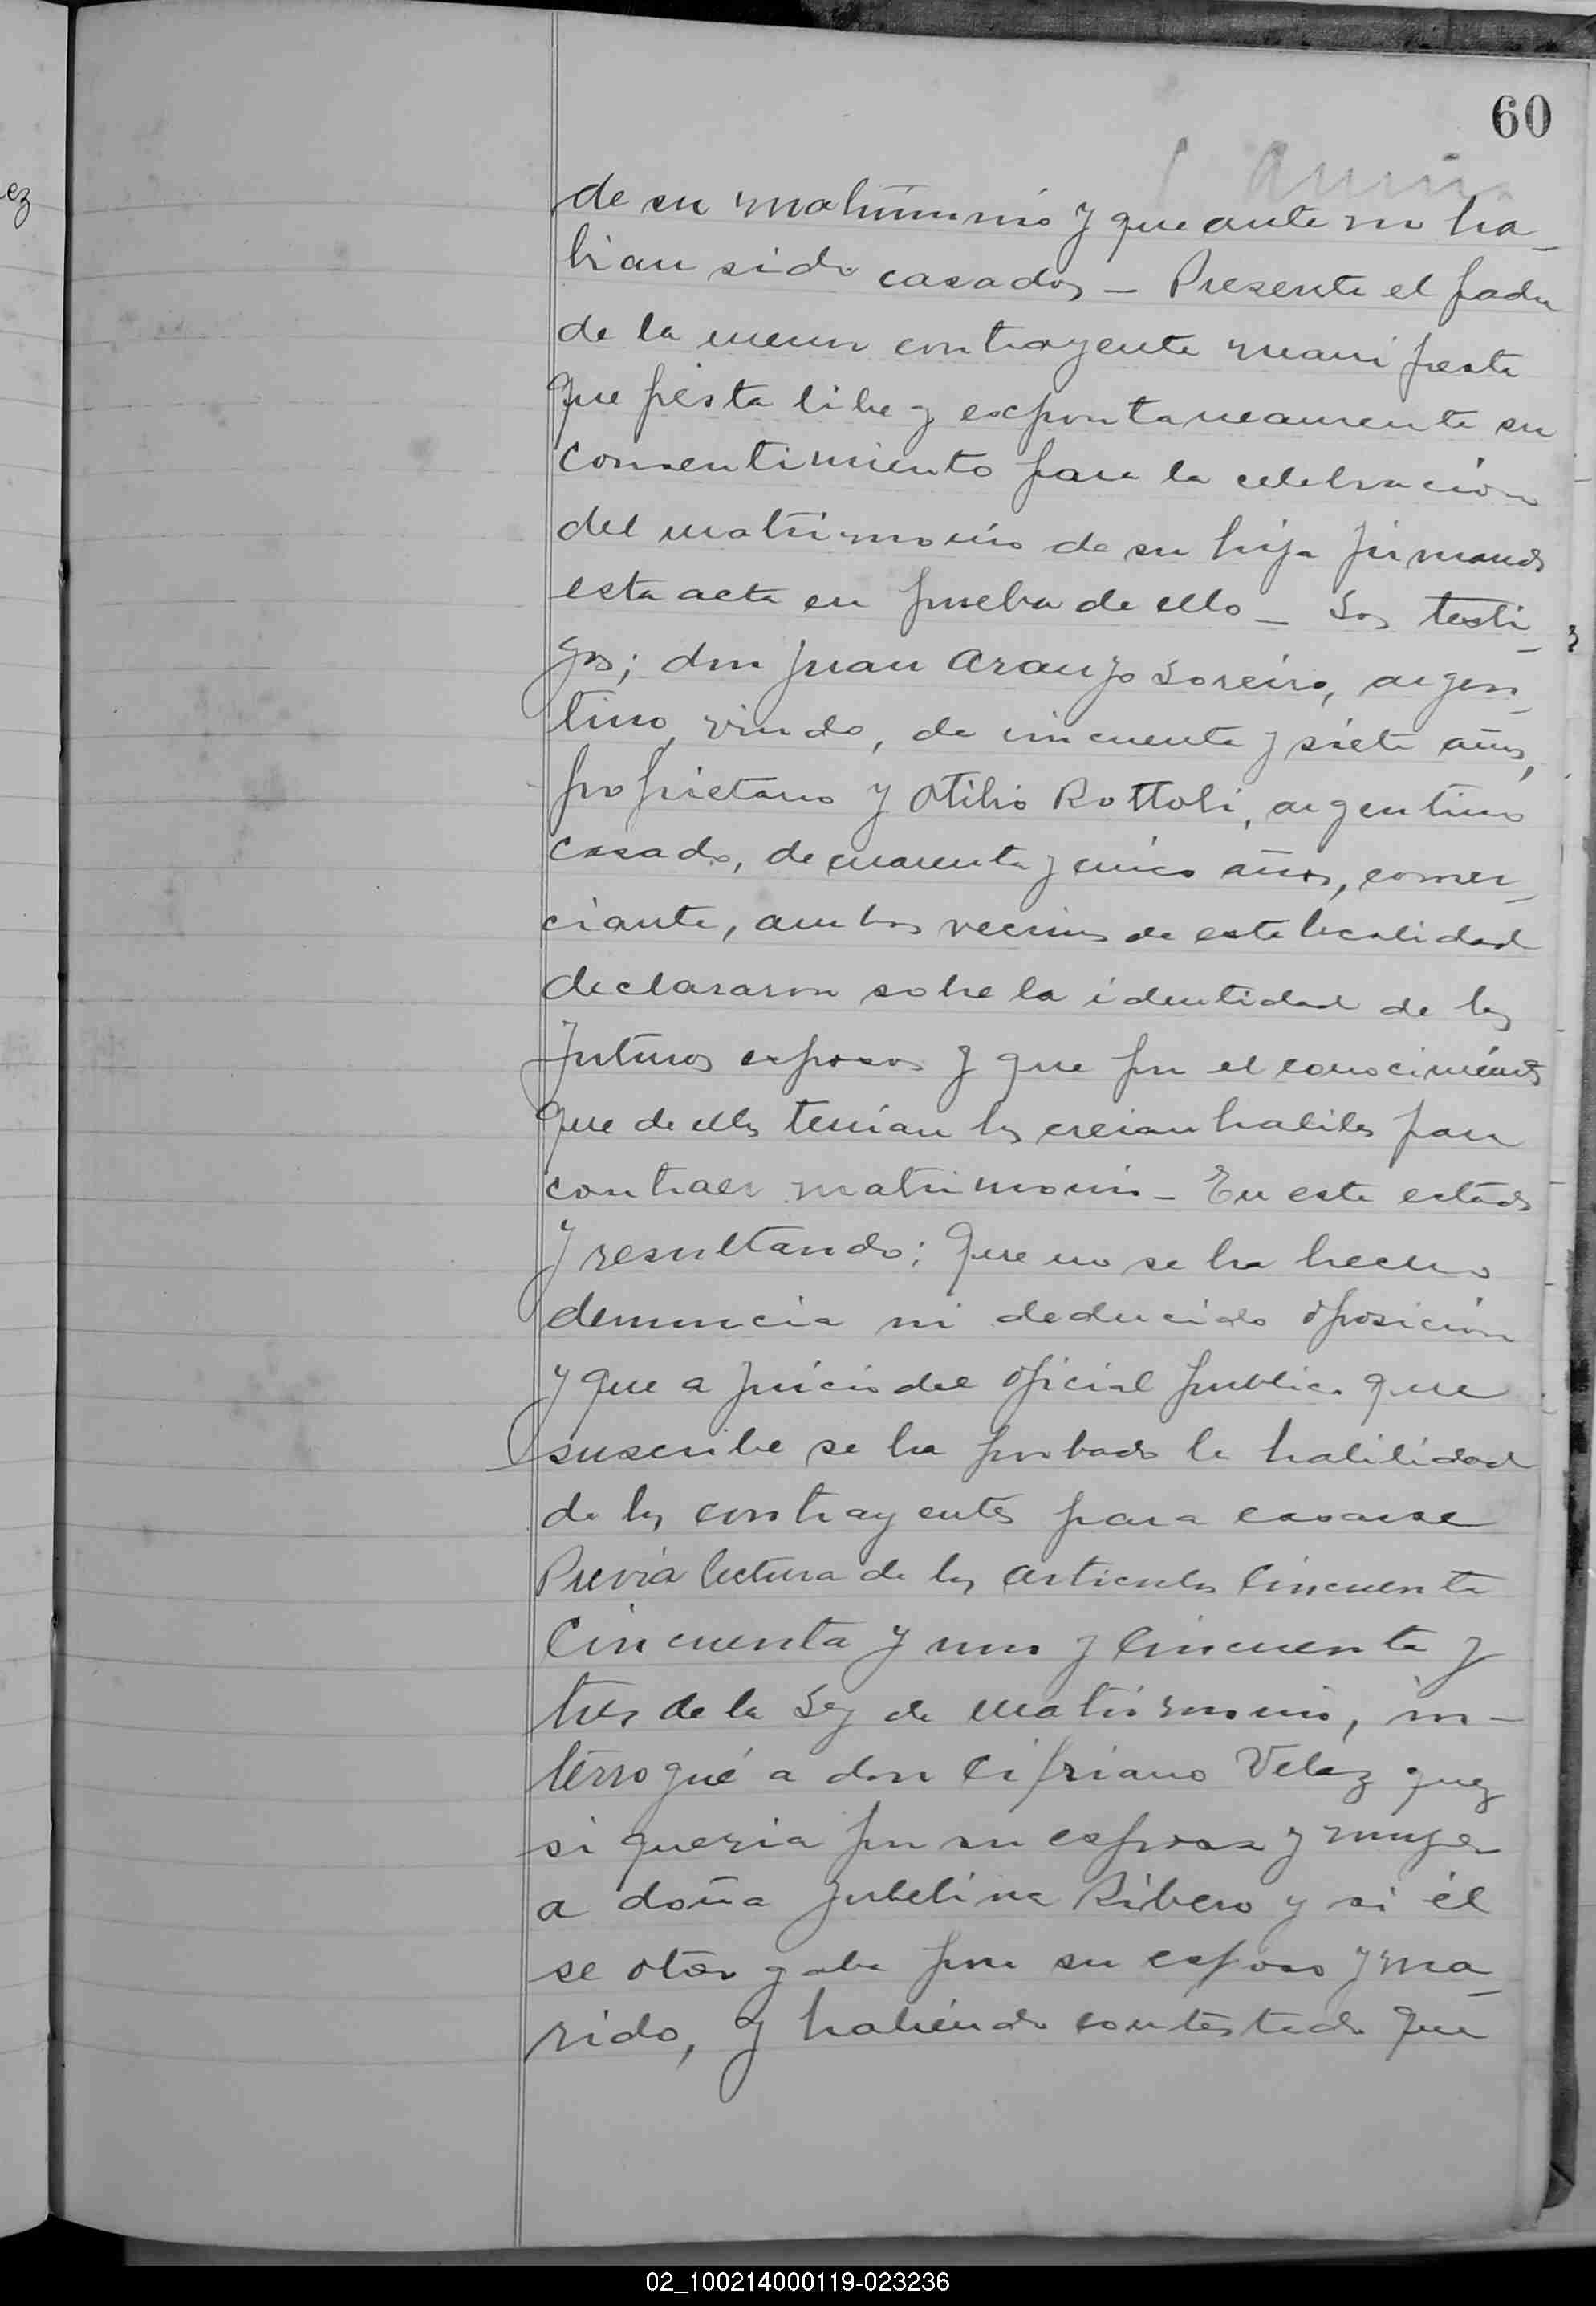 60
de su matrimonio y que ante no ha_
bian sido casados _ Presente el padre
de la menor contrayente manifiesta
que presta libre y expontaneamente su
consentimiento para la celebracion
del matrimonio de su hija firmando
esta acta en prueba de ello _ Los testi_
gos; don Juan Araujo Loreiro, argen_
tino, viudo, de cincuenta y siete años,
propietario y Otilio Rottoli, argentino
casado, de cuarenta y cinco años, comer_
ciante, ambos vecinos de esta localidad
declararon sobre la identidad de los
futuros esposos y que por el conocimiento
que de ellos tenian los creian habiles para
contraer matrimonio _ En este estado
y resultando; Que no se ha hecho
denuncia ni deducido oposición
y que a juicio del oficial publico que
suscribe se ha probado la habilidad
de los contrayentes para casarse
Previa lectura de los articulos Cincuenta
Cincuenta y uno y Cincuenta y
tres de la Ley de Matrimonio, in_
terrogué a don Cipriano Veláz quez
si queria por su esposa y mujer
a doña Jubelina Ribero y si él
se otorgaba por su esposo y ma_
rido, y habiendo contestado que
02_100214000119-023236